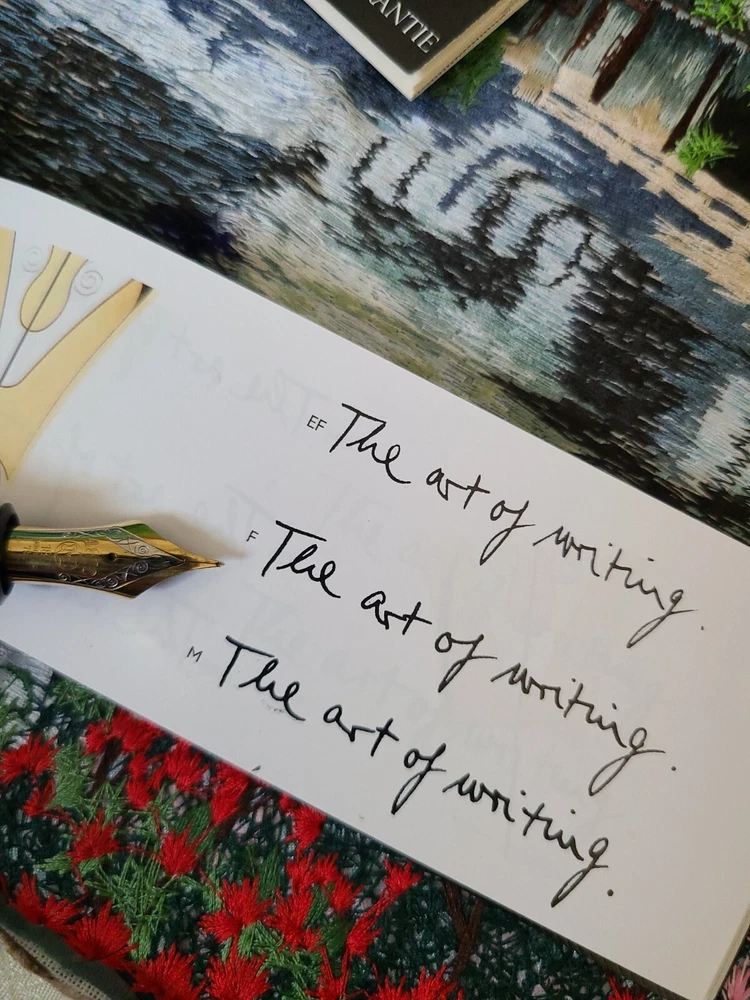 ANTIE
EF The art of writing.
F The art of writing.
M The art of writing.